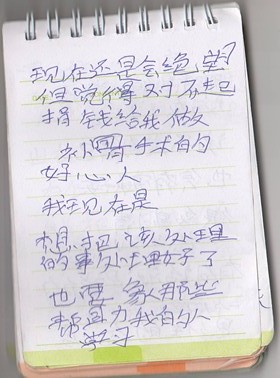 现在还是会绝望
但觉得对不起
捐钱给我做
补胃手术的
好心人
我现在是
想把该处理
的事处理好了
也要象那些
帮助我的人
学习